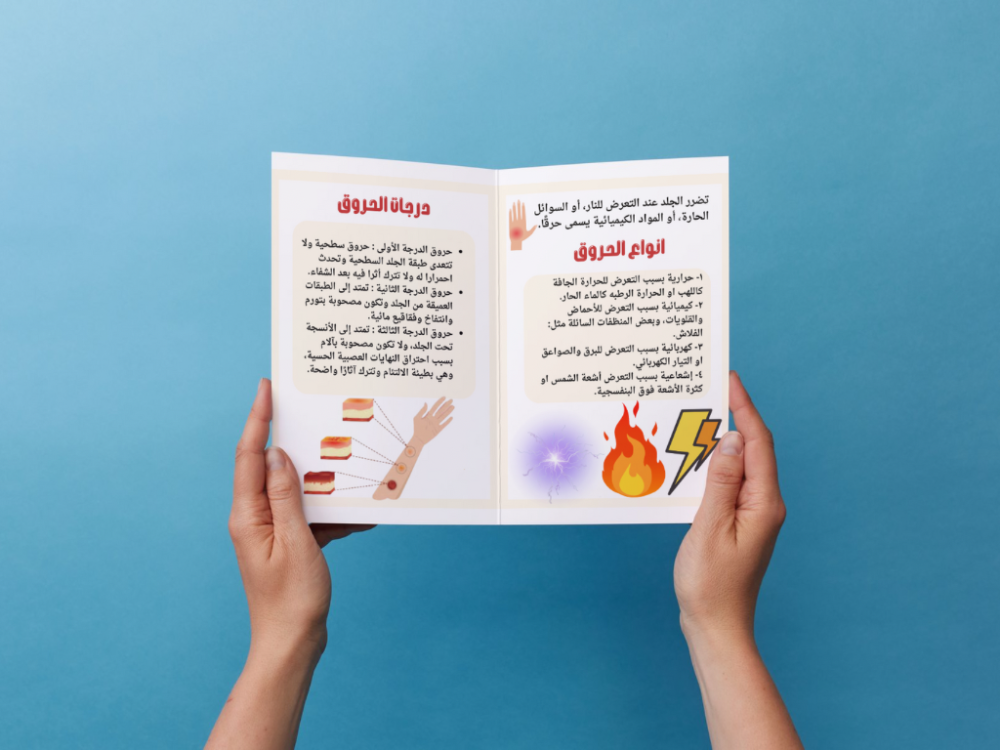 تضرر الجلد عند التعرض للنار، أو السوائل
الحارة، أو المواد الكيميائية يسمى حرقًا.
انواع الحروق
١- حرارية بسبب التعرض للحرارة الجافة
كاللهب او الحرارة الرطبه كالماء الحار.
٢- كيميائية بسبب التعرض للأحماض
والقلويات، وبعض المنظفات السائلة مثل:
الفلاش.
٣- كهربائية بسبب التعرض للبرق والصواعق
او التيار الكهربائي.
٤- إشعاعية بسبب التعرض أشعة الشمس او
كثرة الأشعة فوق البنفسجية.
درجات الحروق
• حروق الدرجة الأولى : حروق سطحية ولا
تتعدى طبقة الجلد السطحية وتحدث
احمرارا له ولا تترك أثرا فيه بعد الشفاء.
• حروق الدرجة الثانية : تمتد إلى الطبقات
العميقة من الجلد وتكون مصحوبة بتورم
وانتفاخ وفقاقيع مائية.
• حروق الدرجة الثالثة : تمتد إلى الأنسجة
تحت الجلد، ولا تكون مصحوبة بآلام
بسبب احتراق النهايات العصبية الحسية،
وهي بطيئة الالتئام وتترك آثارًا واضحة.